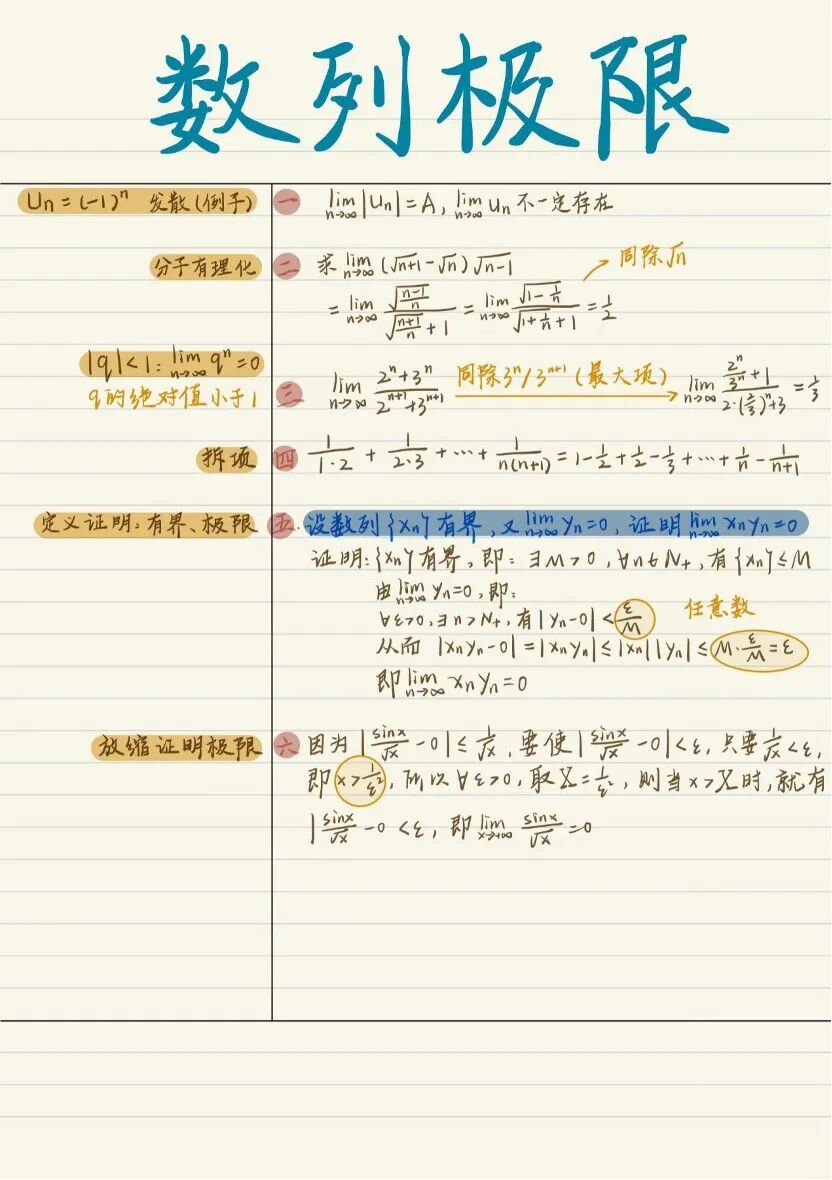 数列极限
Un = (-1)ⁿ 发散(例子) 一 lim n→∞ |Un| = A, lim n→∞ Un 不一定存在
分子有理化 二 求 lim n→∞ (√n+1 - √n) √n-1 同除√n
= lim n→∞ √((n-1)/n) / (√((n+1)/n) + 1) = lim n→∞ √(1 - 1/n) / (√(1 + 1/n) + 1) = 1/2
|q| < 1: lim n→∞ qⁿ = 0
q的绝对值小于1 三 lim n→∞ (2ⁿ + 3ⁿ) / (2ⁿ⁺¹ + 3ⁿ⁺¹) 同除3ⁿ/3ⁿ⁺¹ (最大项) lim n→∞ (2ⁿ/3ⁿ + 1) / (2·(2/3)ⁿ + 3) = 1/3
拆项 四 1/(1·2) + 1/(2·3) + ··· + 1/(n(n+1)) = 1 - 1/2 + 1/2 - 1/3 + ··· + 1/n - 1/(n+1)
定义证明: 有界、极限 五. 设数列{xn}有界, 又 lim n→∞ yn = 0, 证明 lim n→∞ xnyn = 0
证明: {xn}有界, 即: ∃M > 0, ∀n∈N₊, 有{xn} ≤ M
由 lim n→∞ yn = 0, 即:
∀ε>0, ∃n > N₊, 有|yn - 0| < ε/M 任意数
从而 |xnyn - 0| = |xnyn| ≤ |xn||yn| ≤ M·ε/M = ε
即 lim n→∞ xnyn = 0
放缩证明极限 六 因为 |sinx/√x - 0| ≤ 1/√x, 要使 |sinx/√x - 0| < ε, 只要 1/√x < ε,
即 x > 1/ε², 所以 ∀ε>0, 取X = 1/ε², 则当x > X时, 就有
|sinx/√x - 0 < ε, 即 lim x→+∞ sinx/√x = 0